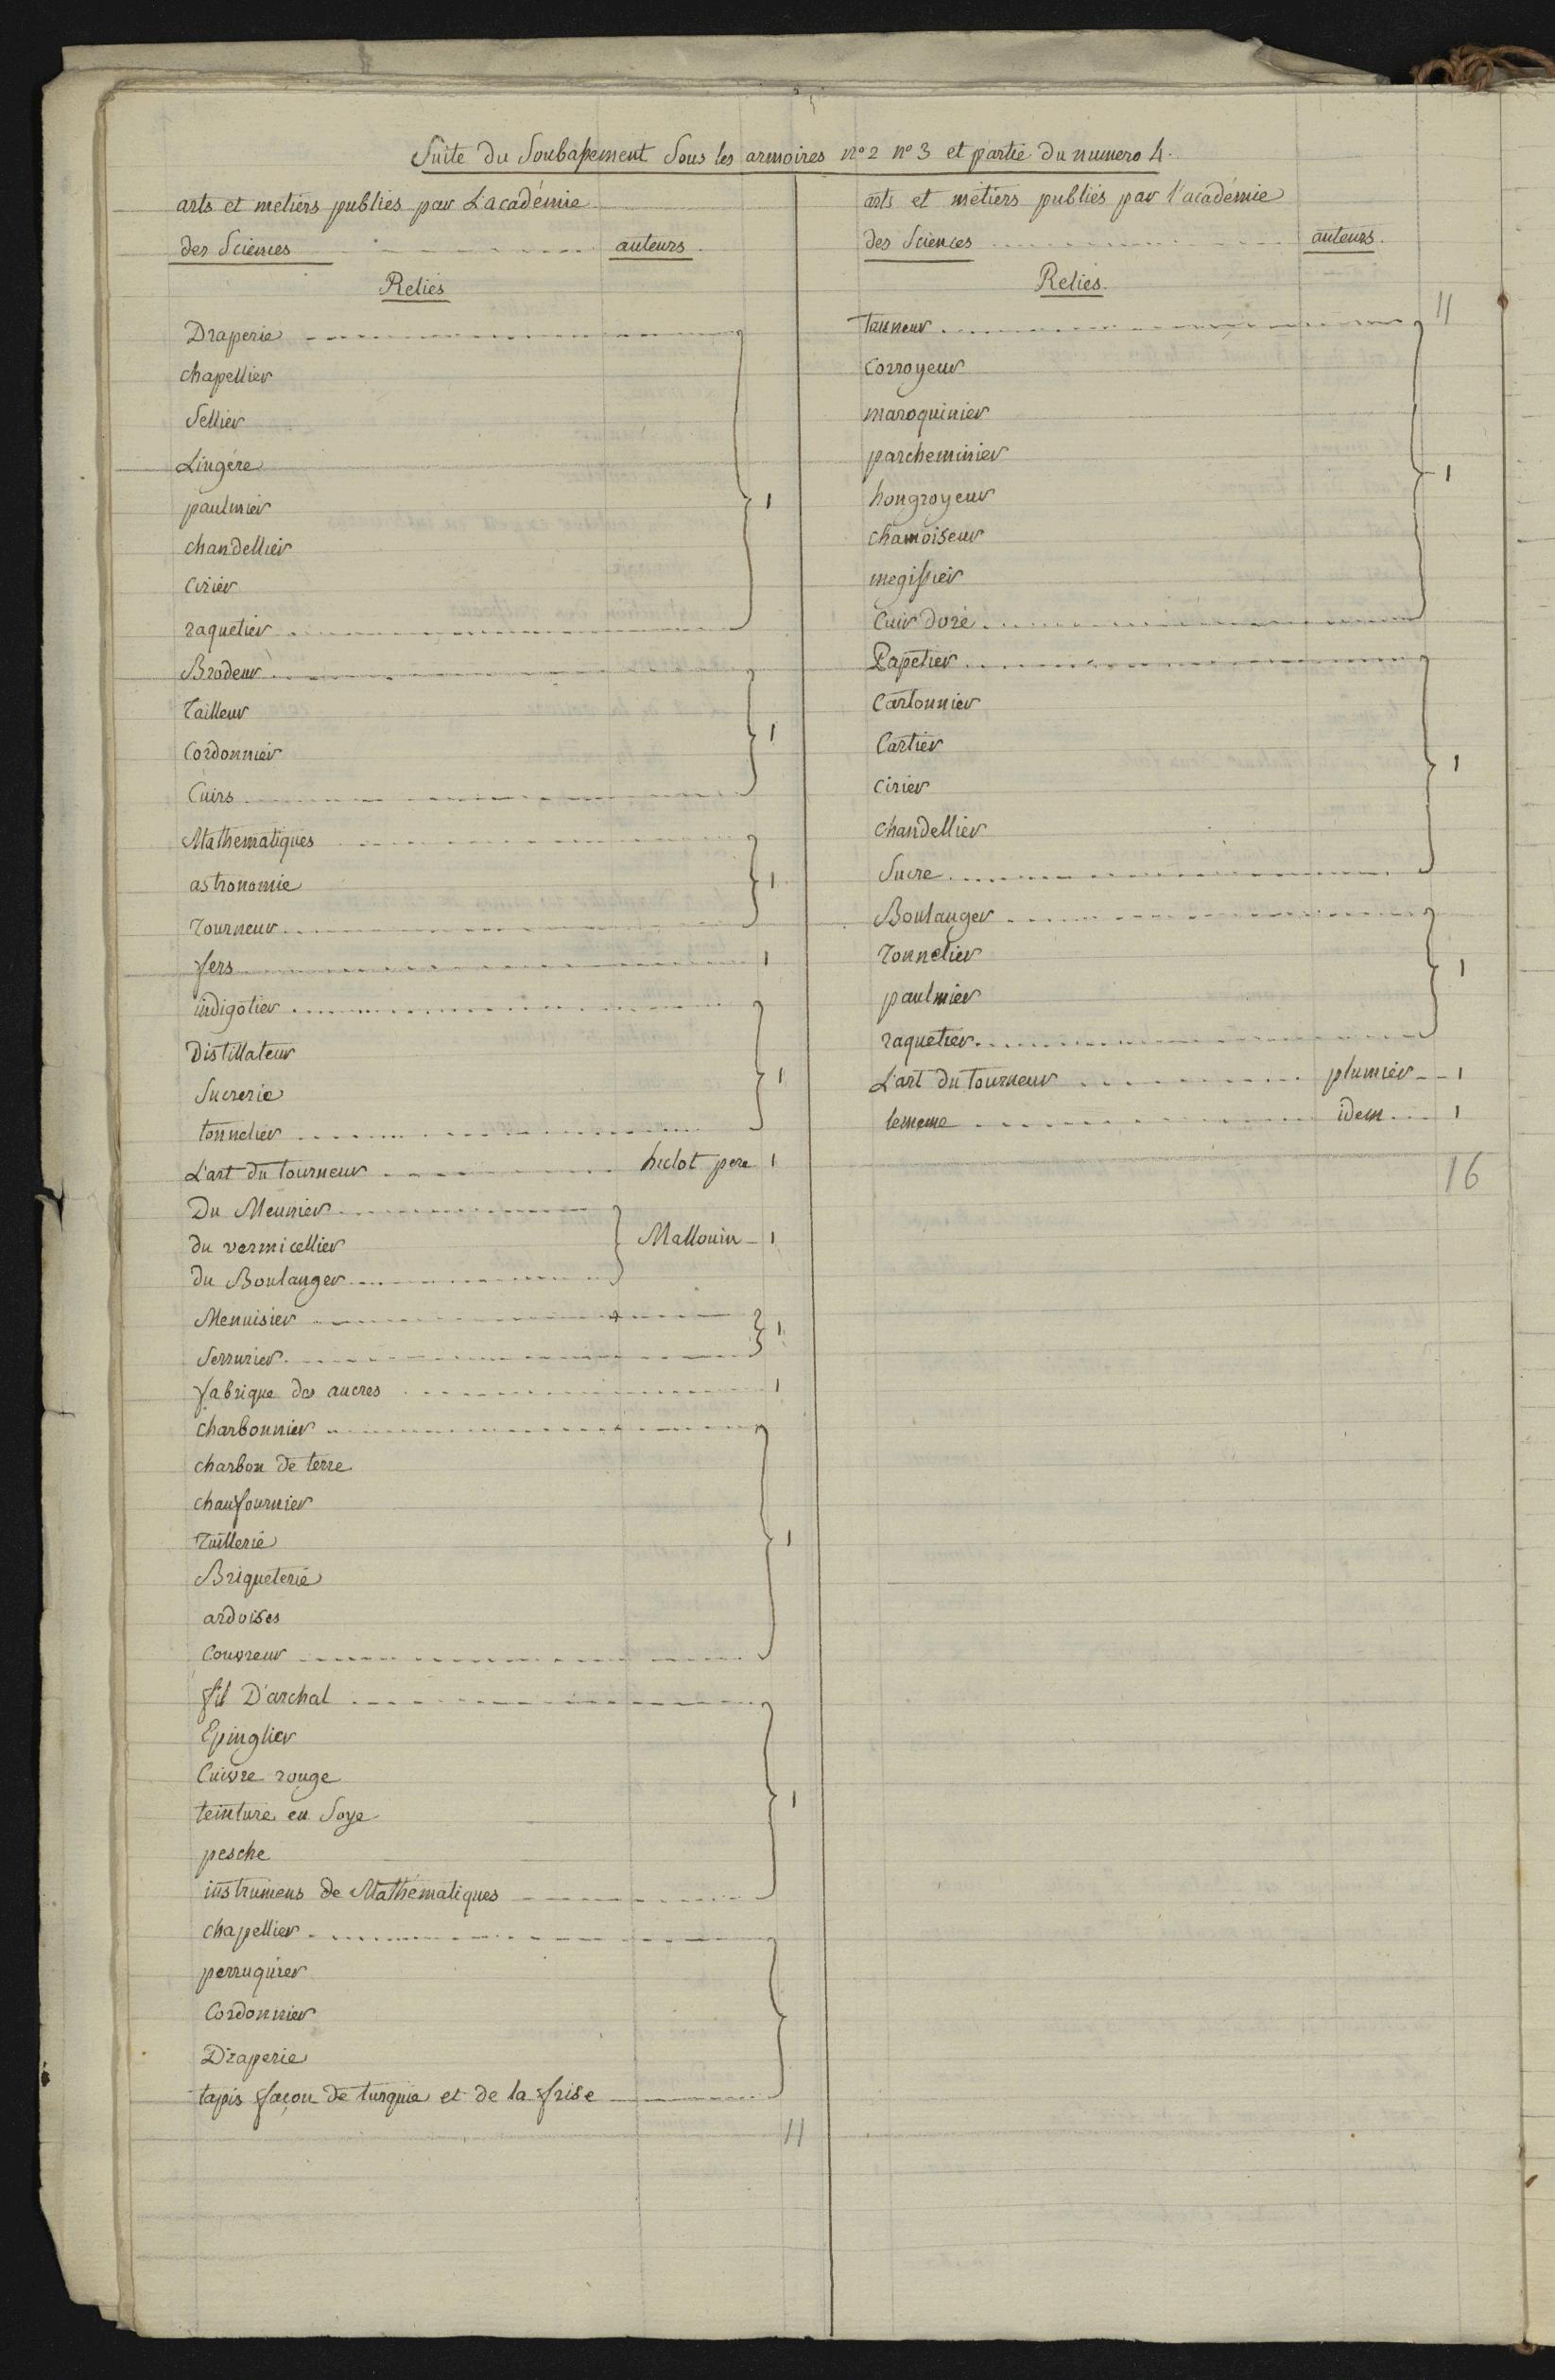 Suite du Soubassement Sous les armoires n° 2 n° 3 et partie du numero 4.
arts et metiers publiés par L'académie
des Sciences auteurs.
Reliés
Draperie
chapellier
Sellier
Lingére
paulmier
chandellier
Cirier
raquetier
1
Brodeur
Tailleur
Cordonnier
Cuirs
1
Mathematiques
astronomie
Tourneur
1
fers 1
indigotier
Distillateur
Sucrerie
tonnelier
1
L'art du tourneur pere 1
Du Meunier
du vermicellier
du Boulanger
Mallouin 1
Menuisier
Serrurier
1
fabrique des ancres 1
charbonnier
charbon de terre
chaufournier
Tuillerie
Briqueterie
ardoises
Couvreur
1
fil D'archal
Epinglier
Cuivre rouge
teinture en Soye
pesche
instrumens de Mathématiques
1
chapellier
perruquier
Cordonnier
Draperie
tapis façon de turquie et de la frise
11
arts et métiers publiés par l'académie
des Sciences auteurs.
Reliés.
11
Tanneur
Corroyeur
maroquinier
parcheminier
hongroyeur
chamoiseur
megissier
Cuir doré
1
Papetier
Cartonnier
Cartier
Cirier
chandellier
Sucre
1
Boulanger
Tonnelier
paulmier
raquetier
1
L'art du tourneur plumier 1
lememe idem 1
16